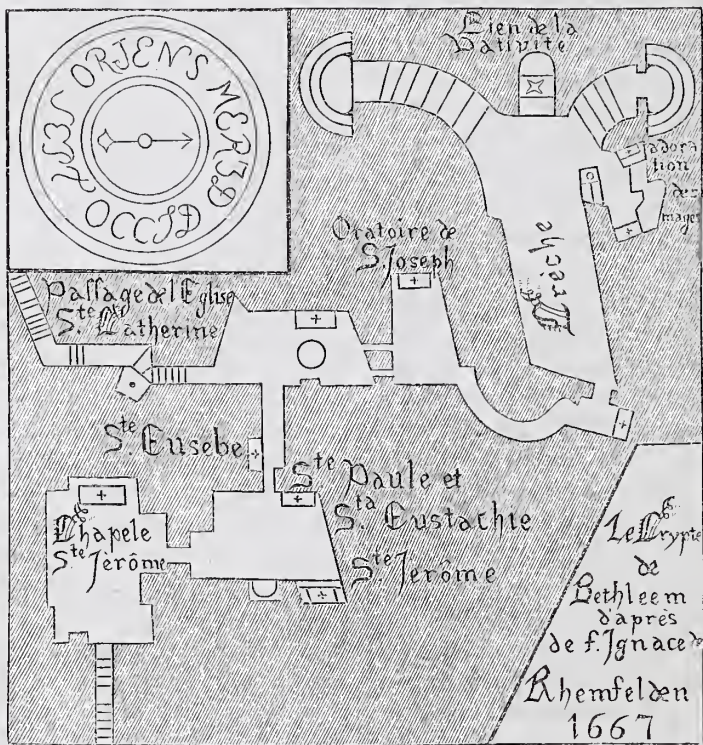 SEPT ORIENS MERID OCCID
Lieu de la
Nativité
adora
tion
des
mages
Oratoire de
S. Joseph
Crèche
Passage de l'Eglise
Ste Catherine
Ste Eusebe
Ste Paule et
Sta Eustachie
Chapele
Ste Jérôme
Ste Jerôme
Le Crypte
de
Bethleem
d'après
de f. Ignace de
Rhemfelden
1667